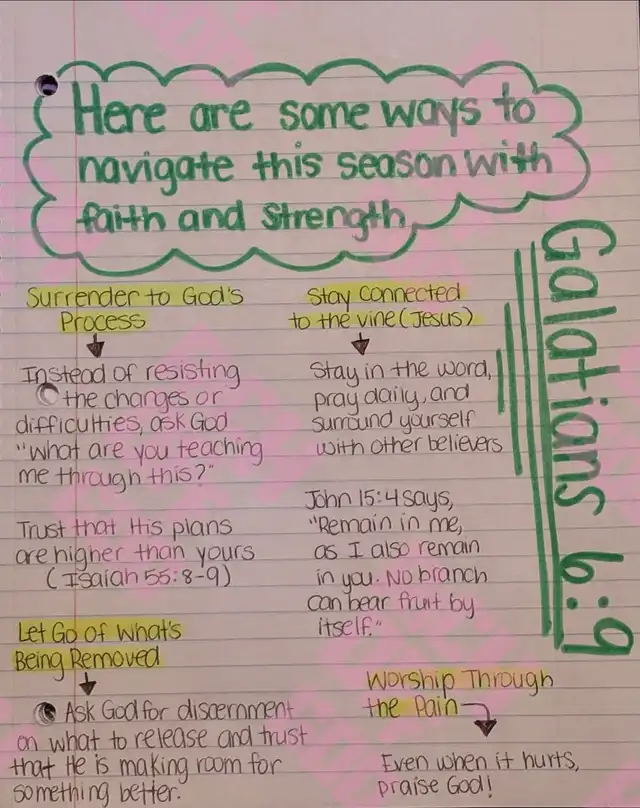 Here are some ways to
navigate this season with
faith and Strength
Galatians 6:9
Surrender to God's
Process
Instead of resisting
the changes or
difficulties, ask God
"What are you teaching
me through this?"
Trust that His plans
are higher than yours
(Isaiah 55:8-9)
Let Go of What's
Being Removed
Ask God for discernment
on what to release and trust
that He is making room for
something better.
Stay Connected
to the vine (Jesus)
Stay in the word,
pray daily, and
surround yourself
with other believers
John 15:4 says,
"Remain in me,
as I also remain
in you. No branch
can bear fruit by
itself."
Worship Through
the Pain
Even when it hurts,
praise God!